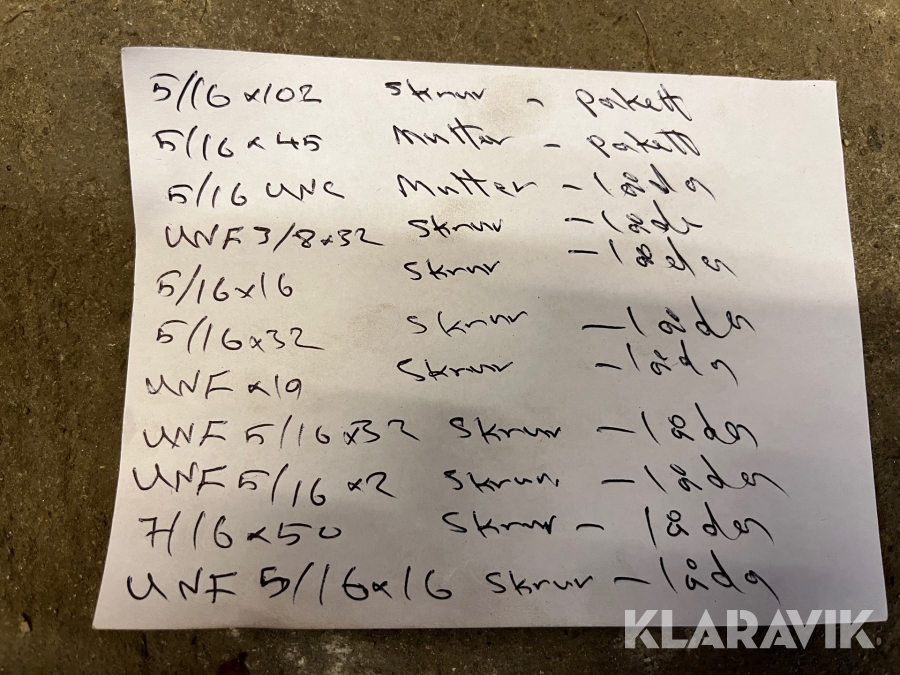 5/16 x 102 Skruv - Pakett
5/16 x 45 Mutter - Pakett
5/16 UNC Mutter - låda
UNF 3/8 x 32 Skruv - låda
5/16 x 16 Skruv - låda
5/16 x 32 Skruv - låda
UNF x 19 Skruv - låda
UNF 5/16 x 32 Skruv - låda
UNF 5/16 x 2 Skruv - låda
7/16 x 50 Skruv - låda
UNF 5/16 x 16 Skruv - låda
KLARAVIK